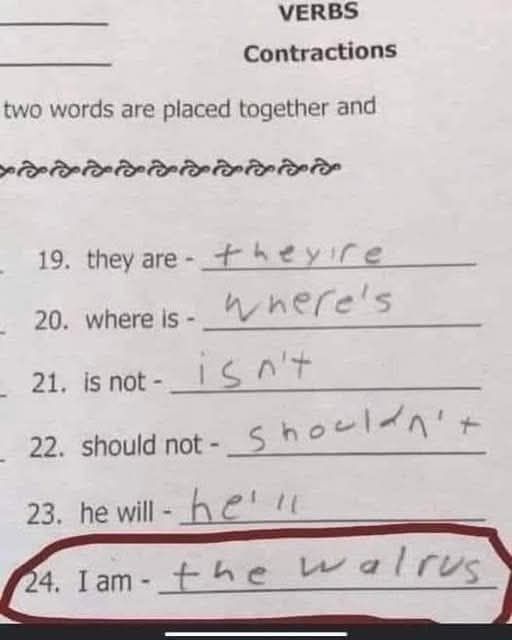 VERBS
Contractions
two words are placed together and
19. they are - they're
20. where is - where's
21. is not - isn't
22. should not - shouldn't
23. he will - he'll
24. I am - the walrus